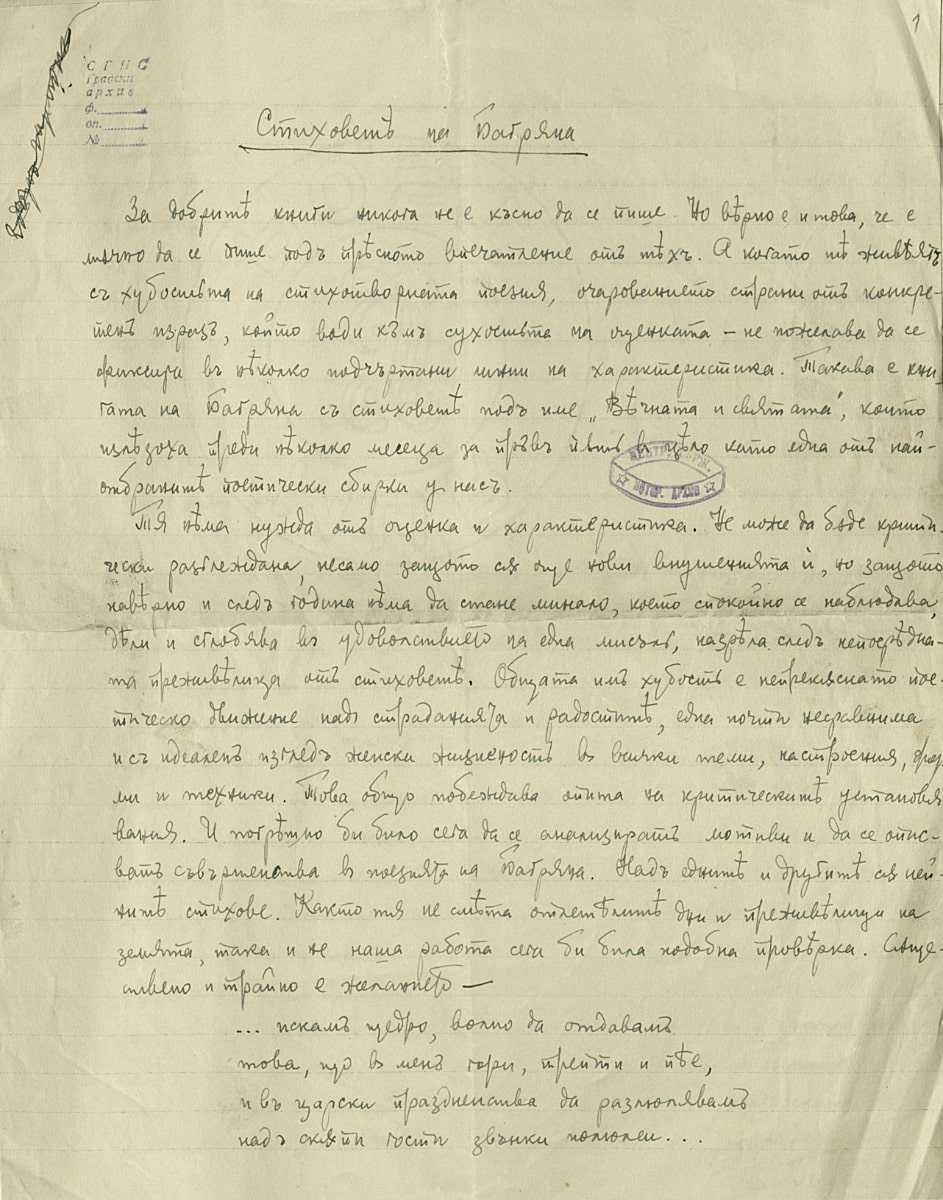 1
С Г Н С
Градски
архив
ф.
оп.
№
Стиховетѣ на Багряна
За добритѣ книги никога не е късно да се пише. Но вѣрно е и това, че е
мѫчно да се пише подъ прѣсното впечатление отъ тѣхъ. А когато тѣ живѣятъ
съ хубостьта на стихотворната поезия, очарованието страни отъ конкре-
тенъ изразъ, който води къмъ сухостьта на оценката – не пожелава да се
фиксира въ нѣколко подчъртани линии на характеристика. Такава е кни-
гата на Багряна съ стиховетѣ подъ име „Вѣчната и святата", които
излѣзоха преди нѣколко месеца за пръвъ пѫть въ цѣло като една отъ най-
отбранитѣ поетически сбирки у насъ.
Тя нѣма нужда отъ оценка и характеристика. Не може да бѫде крити-
чески разглеждана, несамо защото сѫ още нови внушенията ѝ, но защото
навѣрно и следъ година нѣма да стане минало, което спокойно се наблюдава,
дѣли и сглобява въ удоволствието на една мисъль, назрѣла следъ непосрѣдна-
та преживѣлица отъ стиховетѣ. Общата имъ хубость е непрекѫснато пое-
тическо движение надъ страданията и радоститѣ, една почти несравнима
и съ идеаленъ изгледъ женски жизненость въ всички теми, настроения, фор-
ми и техники. Това общо побеждава опита на критическитѣ установя-
вания. И погрѣшно би било сега да се анализиратъ мотиви и да се опис-
ватъ съвършенства въ поезията на Багряна. Надъ еднитѣ и другитѣ сѫ ней-
нитѣ стихове. Както тя не смѣта отлетѣлитѣ дни и преживѣлици на
земята, така и не наша работа сега би била подобна провѣрка. Сѫще-
ствено и трайно е желанието —
... искамъ щедро, волно да отдавамъ
това, що въ менъ гори, трепти и пѣе,
и въ царски празденства да разлюлявамъ
надъ скѫпи гости звънки полюлеи...